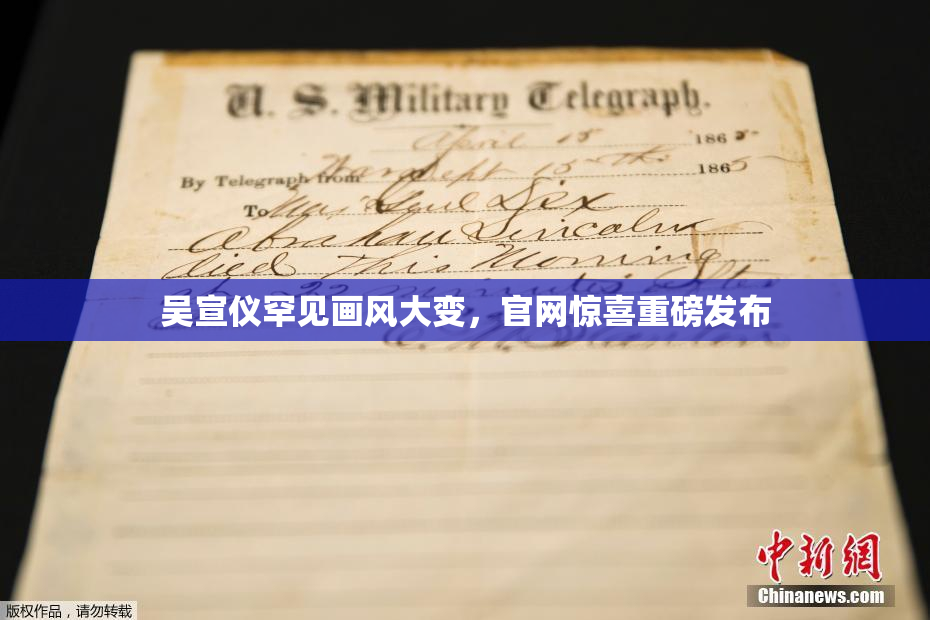 U. S. Military Telegraph.
April 15 1865
By Telegraph from War Dept 15th 1865
To Maj Genl Dix
Abraham Lincoln
died This Morning
at 22 minutes after
吴宣仪罕见画风大变，官网惊喜重磅发布
E. M. Stanton
中新网
Chinanews.com
版权作品，请勿转载